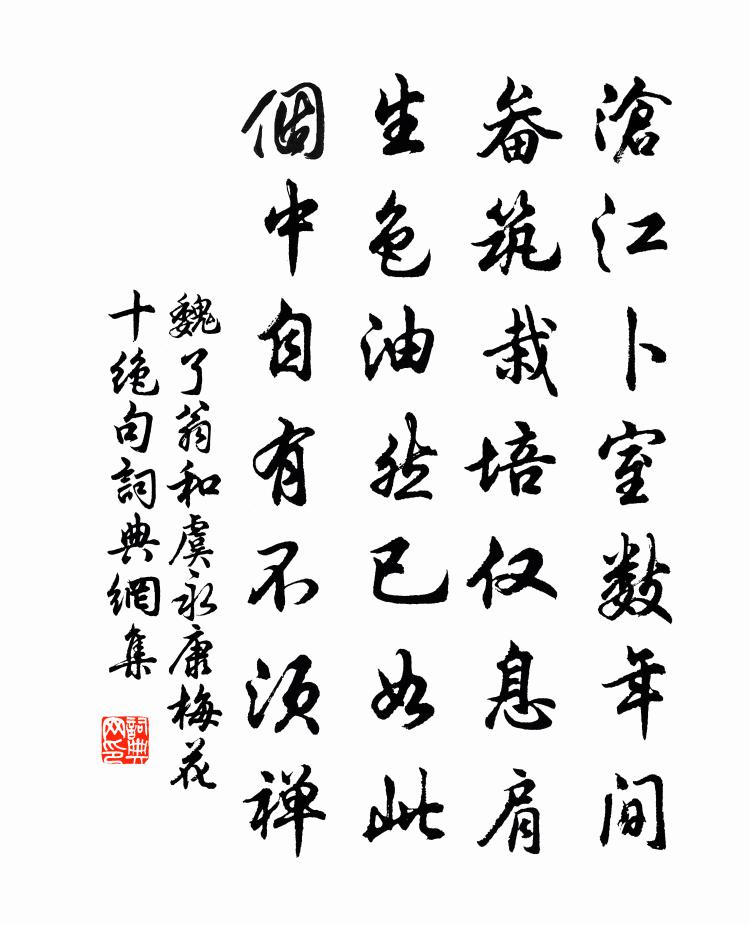 滄江卜室數年間
畚筑栽培仅息肩
生色油然已如此
個中自有不須禅
魏了翁和虞永康梅花
十絶句詞典網集
詞典網印